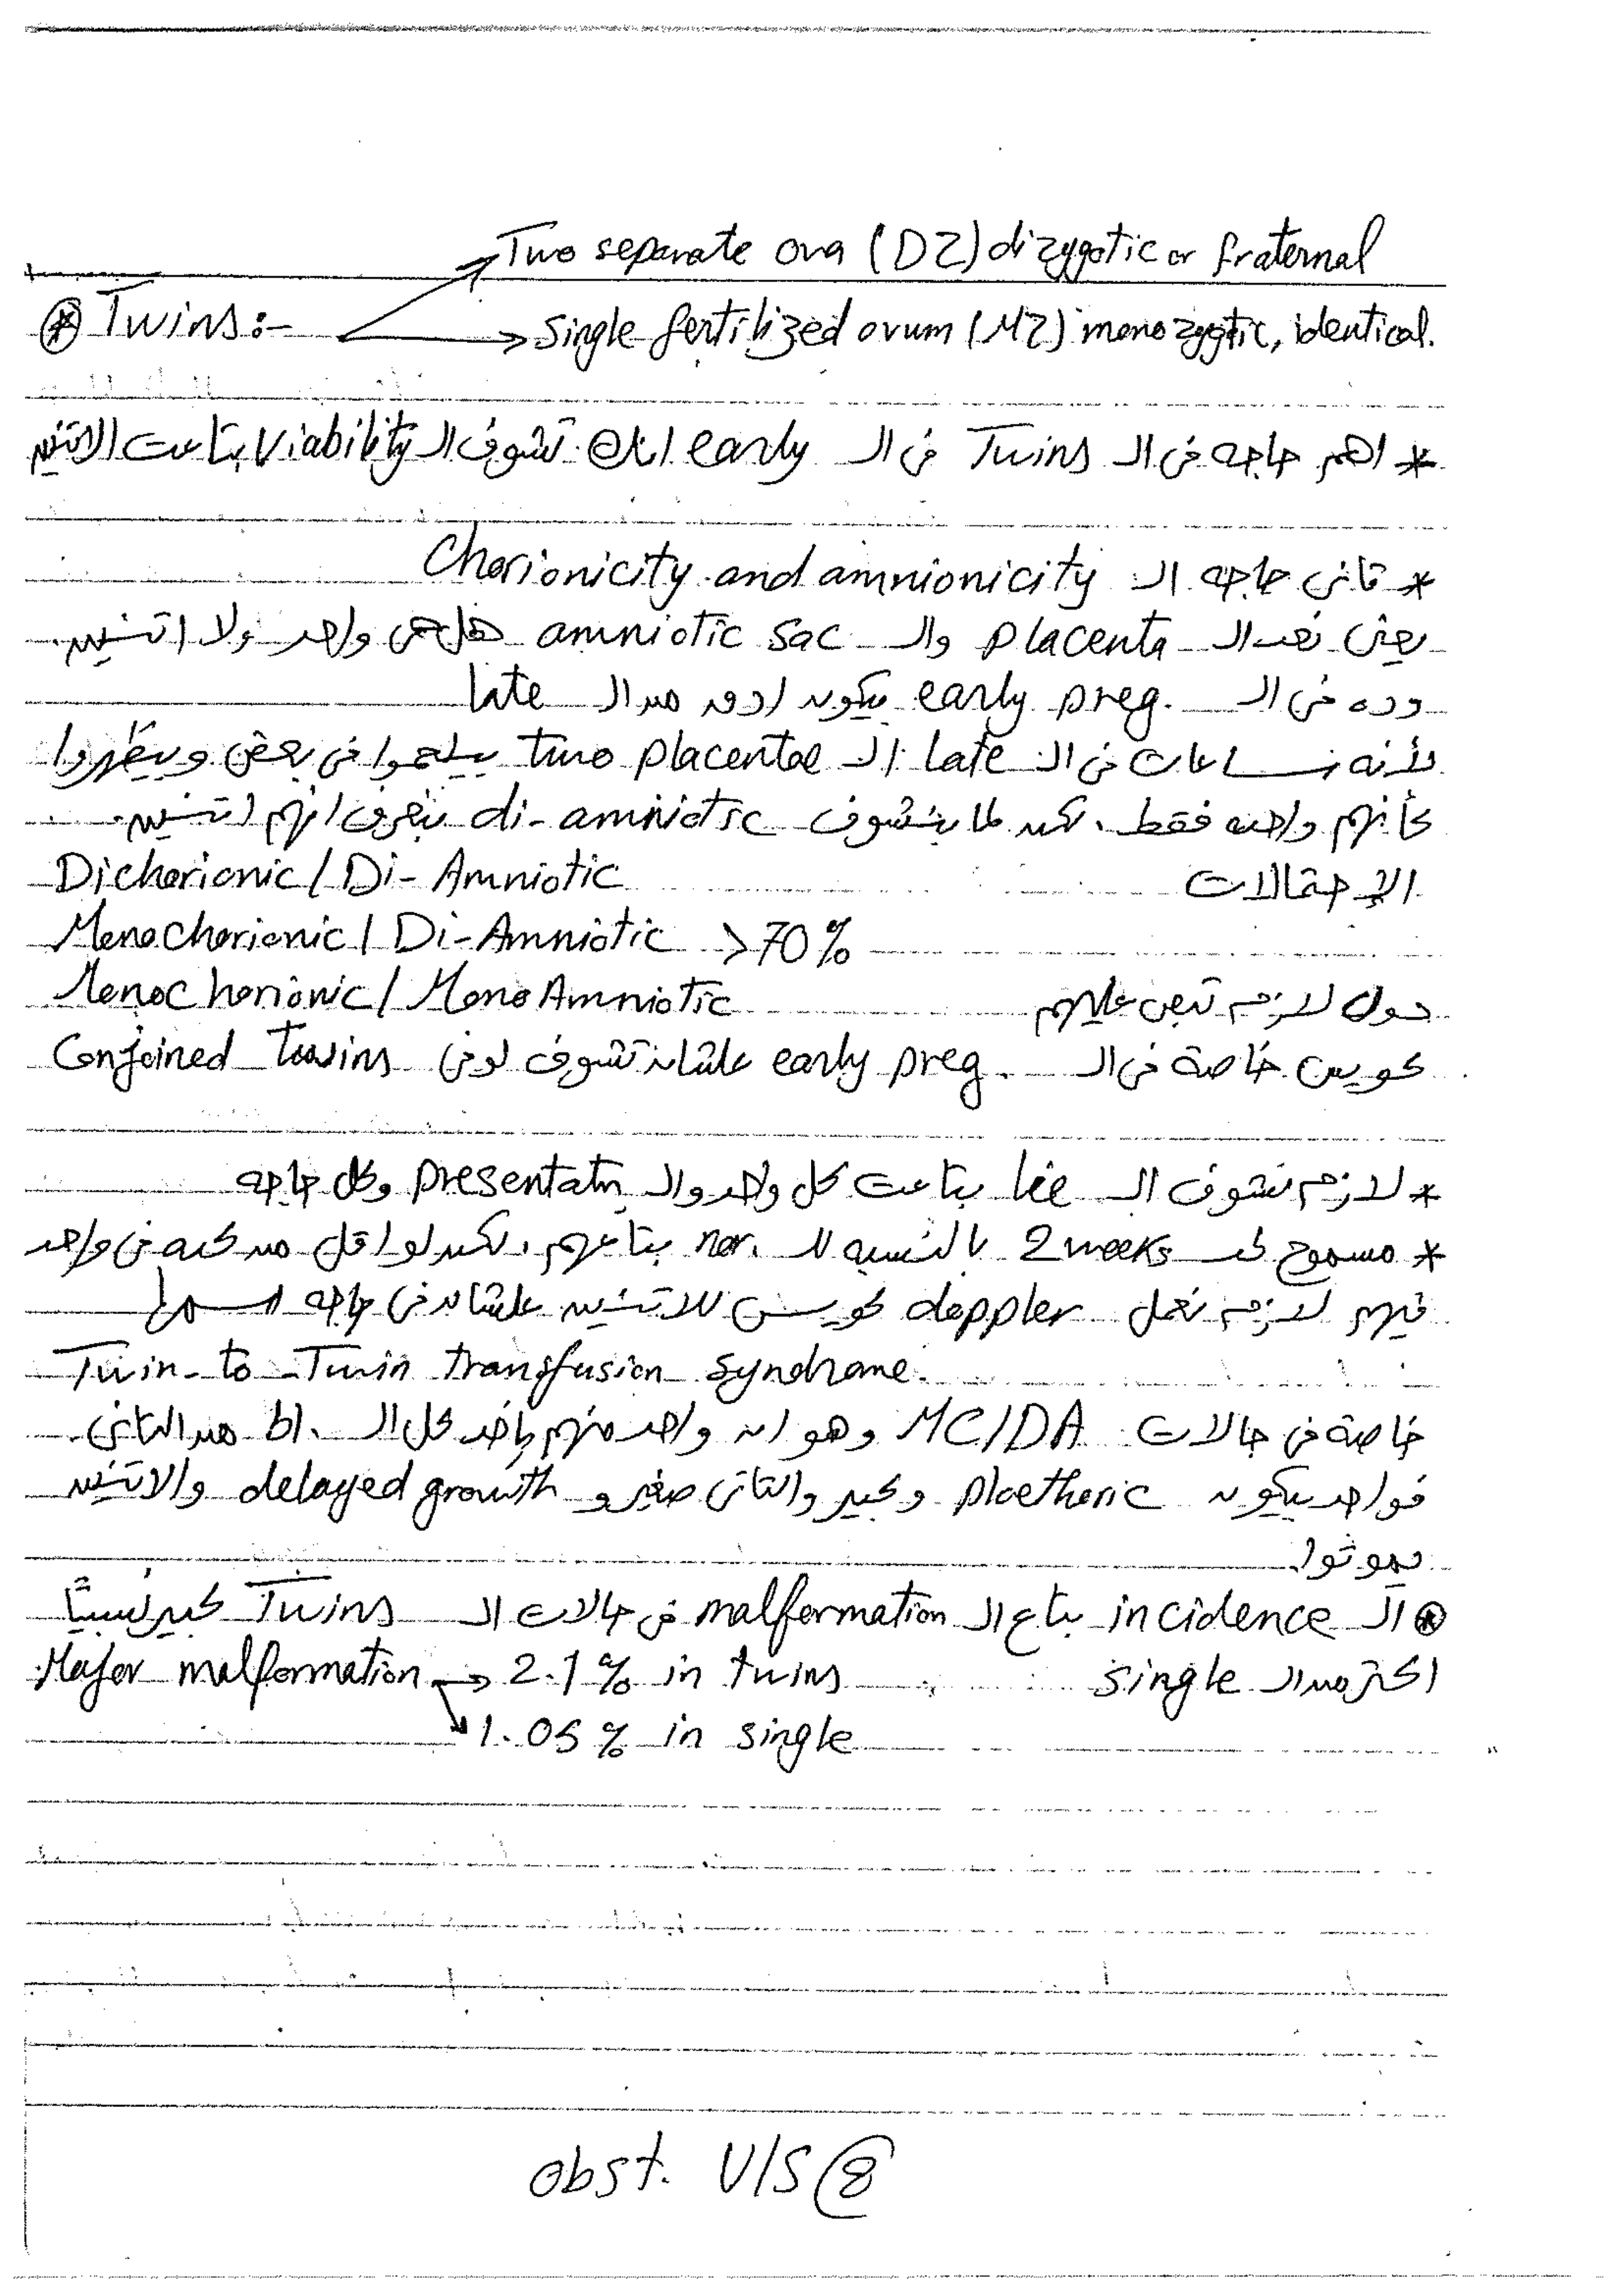 Two separate ova (DZ) dizygotic or fraternal
* Twins:-
Single fertilized ovum (MZ) monozygotic, identical.
* اهم حاجه فى الـ Twins فى الـ early انك تشوف الـ viability بتاعت الاتنين
* تانى حاجه الـ Chorionicity and amnionicity
يعنى نعد الـ placenta والـ amniotic sac هل هى واحد ولا اتنين.
وده فى الـ early preg. بيكون ادق من الـ late
لأنه ساعات فى الـ late الـ two placentae بيلحموا فى بعض ويظهروا
كأنهم واحده فقط، لكن لما بنشوف di-amniotic بنعرف انهم اتنين.
الإحتمالات Dichorionic / Di-Amniotic
Monochorionic / Di-Amniotic >70%
Monochorionic / Mono Amniotic دول لازم تبص عليهم
كويس خاصة فى الـ early preg. علشان تشوف لو فى Conjoined Twins
* لازم نشوف الـ lie بتاعت كل واحد والـ presentatn وكل حاجه
* مسموح لحد 2 weeks بالنسبه للـ بتاعهم، لكن لو اقل من كده فى واحد
فيهم لازم نعمل doppler كويس للاتنين علشان فى حاجه اسمها
Twin-to-Twin transfusion syndrome.
خاصة فى حالات MC/DA وهو ان واحد منهم بياخد كل الـ من التانى.
فواحد بيكون ploetheric وكبير والتانى صغير و delayed growth والاتنين
يموتوا.
* الـ incidence بتاع الـ malformation فى حالات الـ Twins كبير نسبياً
اكتر من الـ single Major malformation → 2.1% in twins
1.05% in single
obst. U/S 8